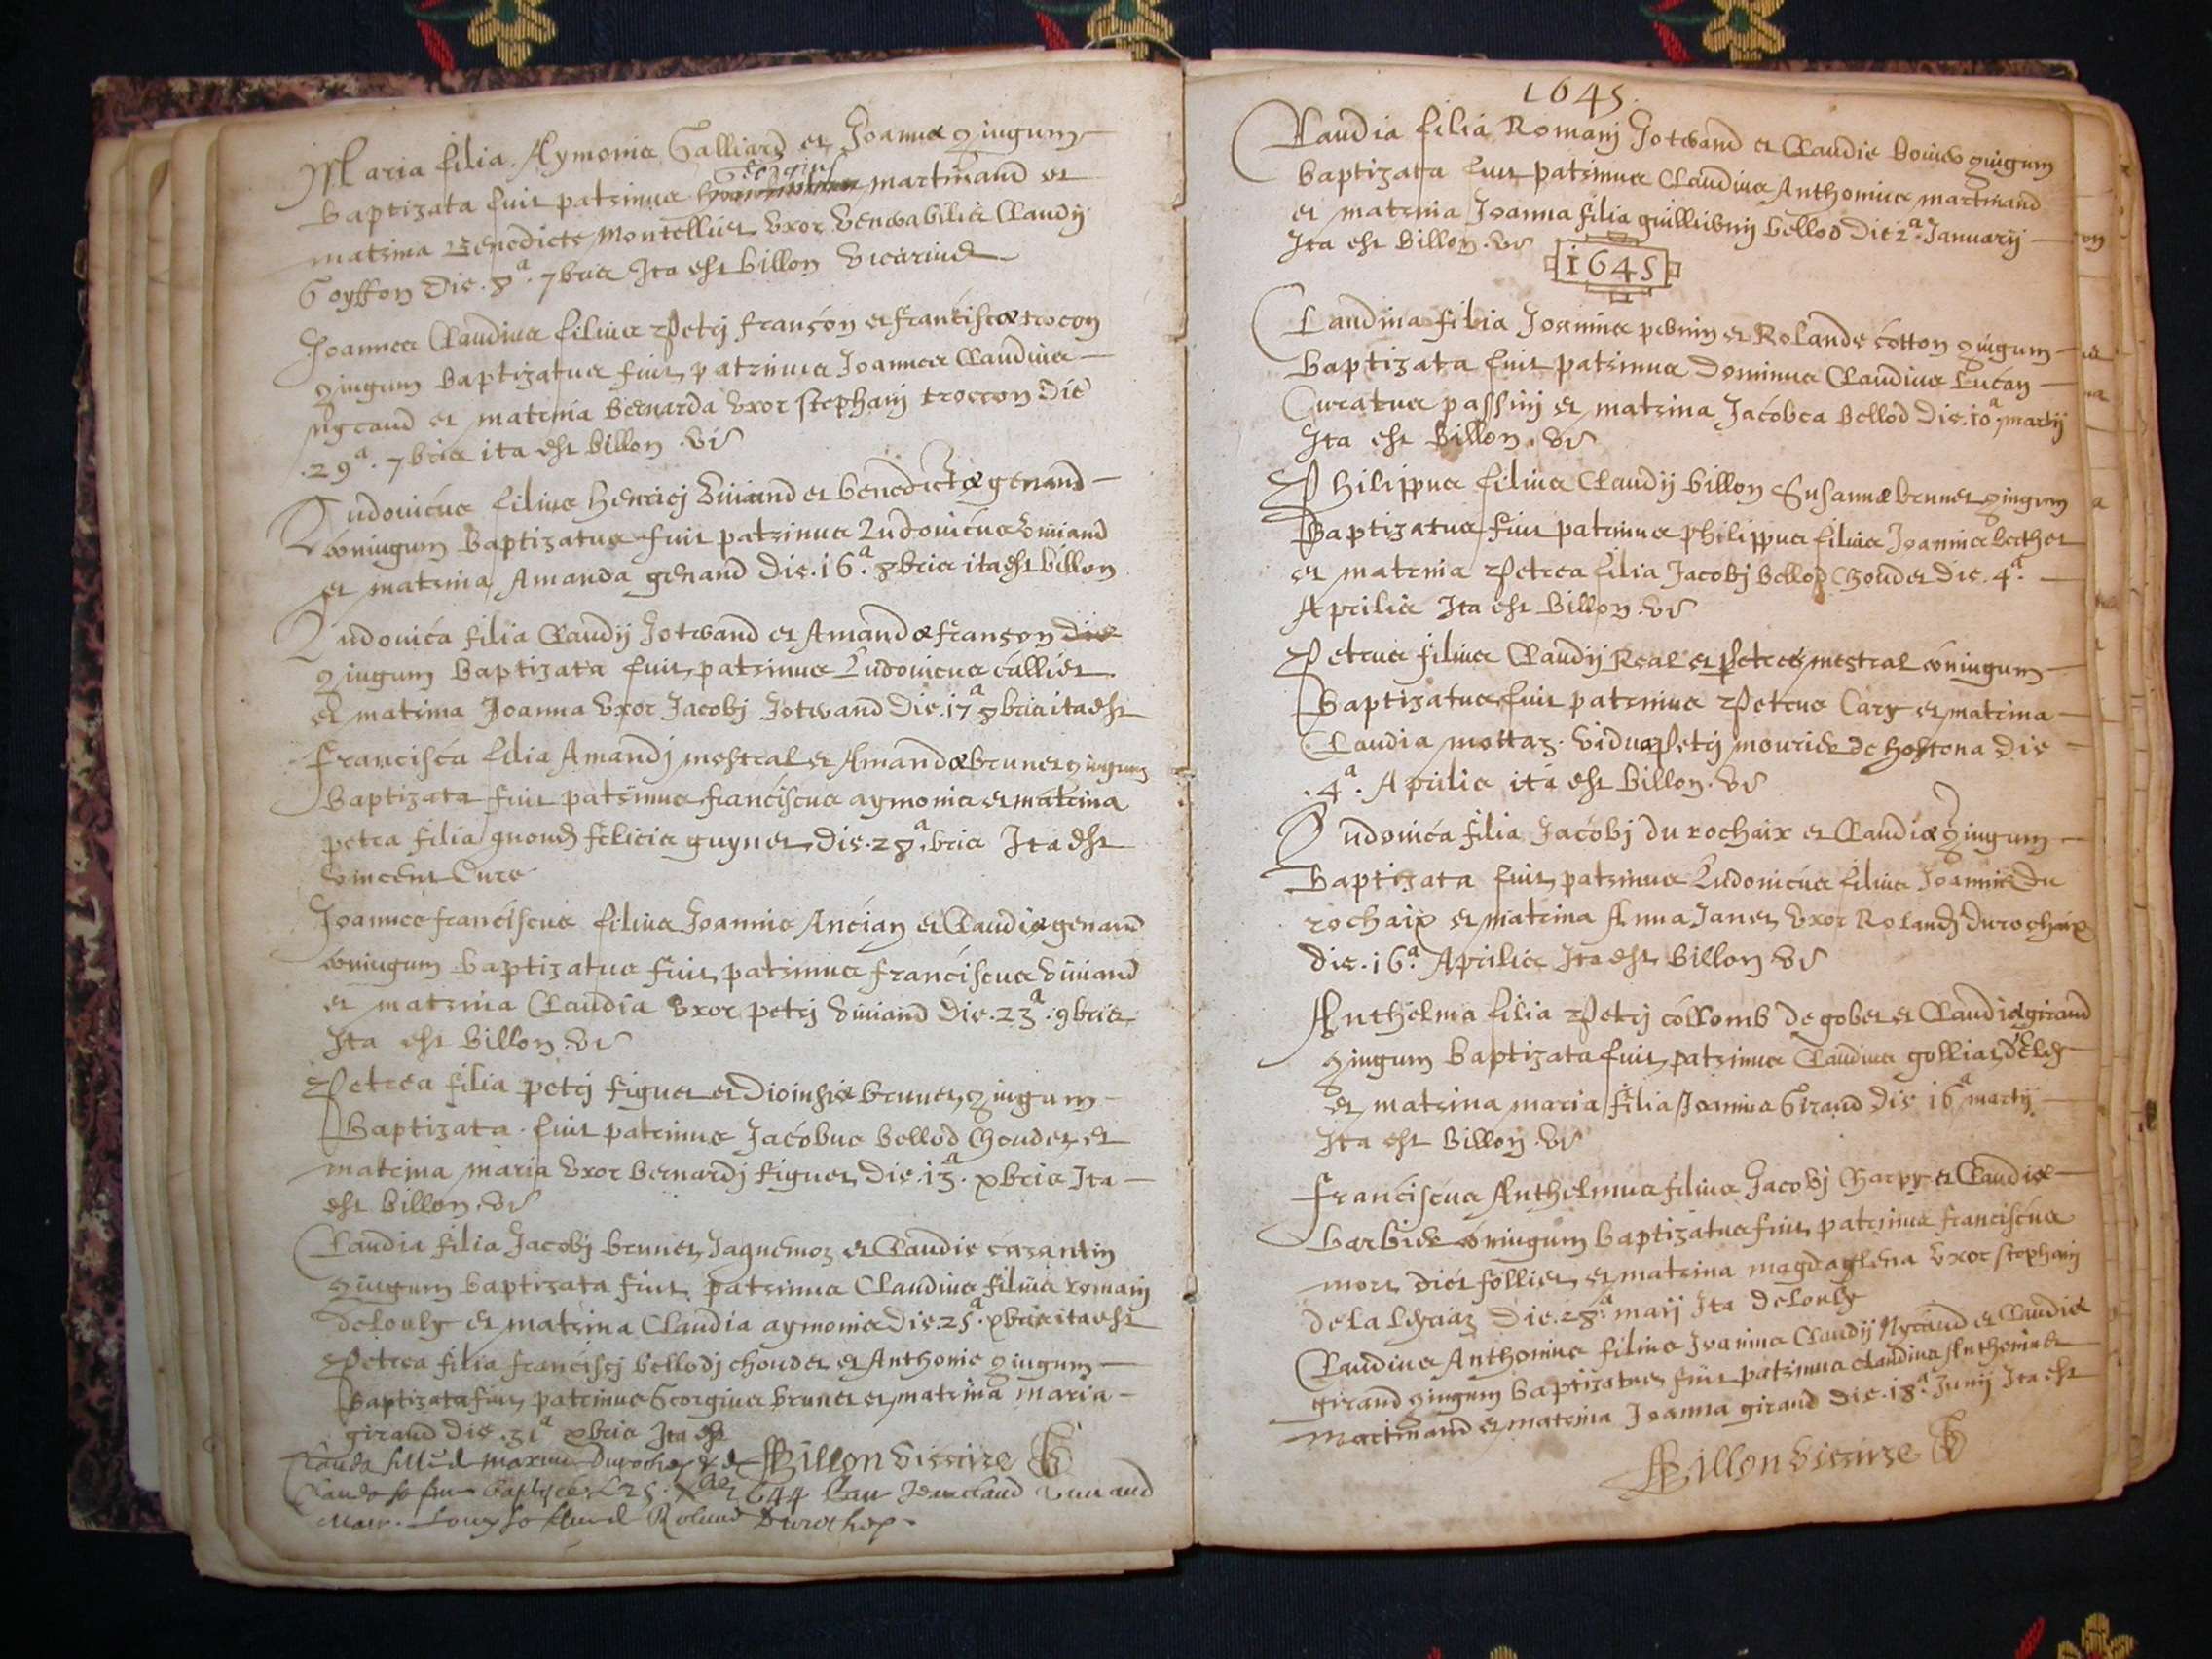 Maria filia Aymonis Galliard et Joannæ ꝯiugum
baptizata fuit patrinus martinand et
matrina Benedicte Montellier uxor venerabilis Claudij
Goyffon die 8ª 7bris Ita est billon vicarius
Joannes Claudius filius Petrj françon et franciscæ troccon
ꝯiugum baptizatus fuit patrinus Joannes Claudius
nyraud et matrina bernarda uxor stephanj troccon die
.29ª. 7bris ita est billon .vi
Ludovicus filius Henricj viviand et benedictæ genand
coniugum baptizatus fuit patrinus Ludovicus viviand
et matrina Amanda genand die .16ª. 8bris ita est billon
Ludovica filia Claudij Joterand et Amandæ françon die
ꝯiugum baptizata fuit patrinus Ludovicus callier
et matrina Joanna uxor Jacobj Joterand die .17ª 8bris ita est
Francisca filia Amandj mestral et Amandæ brunet ꝯiugum
baptizata fuit patrinus franciscus aymonis et matrina
petra filia quond felicis guynet die .28ª. bris Ita est
vincent Cure
Joannes franciscus filius Joannis Ancian et Claudiæ genand
coniugum baptizatus fuit patrinus franciscus viviand
et matrina Claudia uxor petrj viviand die .23ª. 9bris
Ita est billon vi
Petrea filia petrj figuet et dionisiæ brunet ꝯiugum
baptizata fuit patrinus Jacobus bellod Choudet et
matrina maria uxor bernardj figuet die .13ª. xbris Ita
est billon .vi
Claudia filia Jacobj brunet Jaquemoz et Claudie
ꝯiugum baptizata fuit patrinus Claudius filius romanj
delouly et matrina Claudia aymonis die 25ª. xbris ita est
Petrea filia franciscj bellodj choudet et Anthonie ꝯiugum
baptizata fuit patrinus Georgius brunet et matrina maria
giraud die .31ª xbris Ita est
Billon vicaire
Clauda 1644
Roland Durochex
1645
Claudia filia Romanj Joterand et Claudie ꝯiugum
baptizata fuit patrinus Claudius Anthonius martinand
et matrina Joanna filia guillermj bellod die 2ª. Januarij
Ita est billon .vi
1645
Claudina filia Joannis pernin et Rolande cotton ꝯiugum
baptizata fuit patrinus dominus Claudius Lucan
Curatus passinj et matrina Jacobea bellod die .10ª martij
Ita est billon .vi
Philippus filius Claudij billon Susannæ brunet ꝯiugum
baptizatus fuit patrinus philippus filius Joannis berthet
et matrina Petrea filia Jacobj bellod Choudet die .4ª.
Aprilis Ita est billon .vi
Petrus filius Claudij Real et Petree mestral coniugum
baptizatus fuit patrinus Petrus Cary et matrina
Claudia mottaz vidua Petrj mourier de hostona die
.4ª. Aprilis ita est billon .vi
Ludovica filia Jacobj du rochaix et Claudiæ ꝯiugum
baptizata fuit patrinus Ludovicus filius Joannis du
rochaix et matrina Anna Janet uxor Rolandj durochaix
die .16ª. Aprilis Ita est billon vi
Anthelma filia Petrj collomb de gobet et Claudiæ giraud
ꝯiugum baptizata fuit patrinus Claudius golliard
et matrina maria filia Joannis Giraud die 16ª martij
Ita est billon vi
Franciscus Anthelmus filius Jacobj Charpy et Claudiæ
barbier coniugum baptizatus fuit patrinus franciscus
moret dict follier et matrina magdaglena uxor stephanj
de la die .28.ª maij Ita delouly
Claudius Anthonius filius Joannis Claudij Nyraud et Claudiæ
giraud ꝯiugum baptizatus fuit patrinus claudius Anthonius
martinand et matrina Joanna giraud die .18ª. Junij Ita est
Billon vicaire